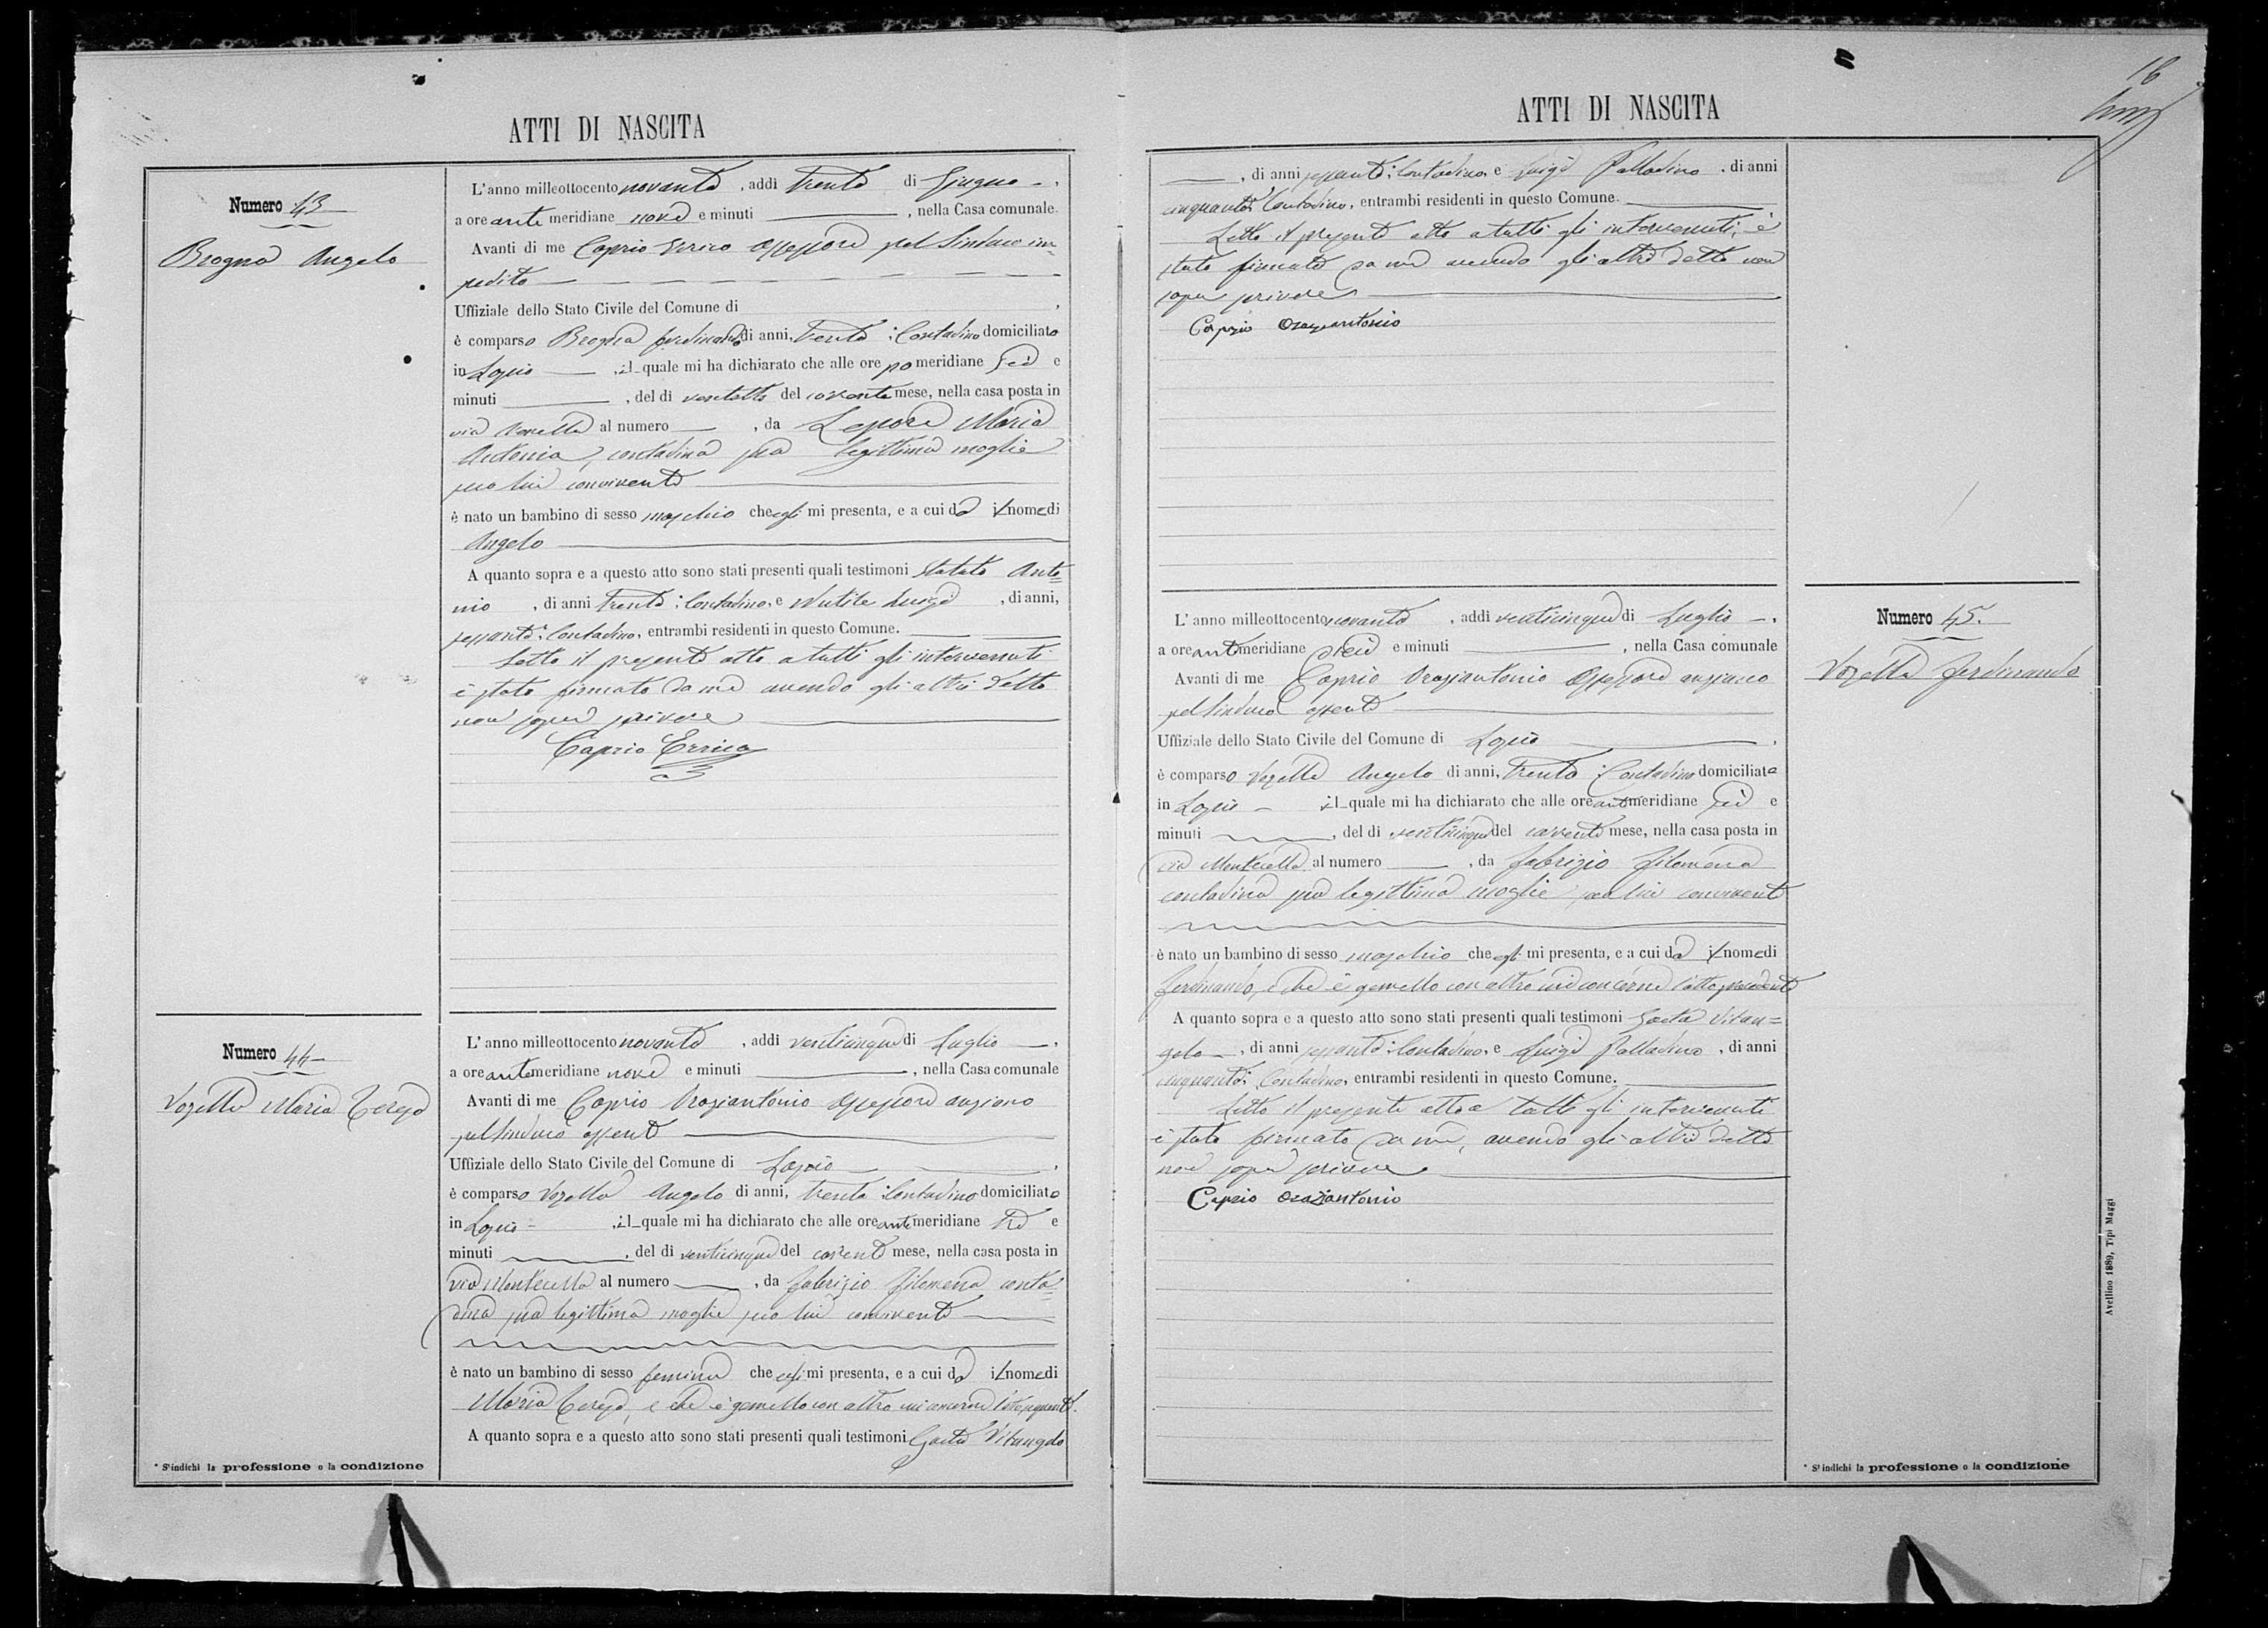 ATTI DI NASCITA
Numero 43
Brogna Angelo
L'anno milleottocento novanta, addì trenta di Giugno
a ore ante meridiane nove e minuti, nella Casa comunale.
Avanti di me Caprio Errico Assessore pel Sindaco im
pedito
Uffiziale dello Stato Civile del Comune di
è comparso Brogna Ferdinando di anni, trenta; Contadino domiciliato
in Lapio, il quale mi ha dichiarato che alle ore pomeridiane sei e
minuti, del dì ventotto del corrente mese, nella casa posta in
via al numero, da Lepore Maria
Antonia, contadina sua legittima moglie
seco lui convivente
è nato un bambino di sesso maschio che egli mi presenta, e a cui dà il nome di
Angelo
A quanto sopra e a questo atto sono stati presenti quali testimoni Anto=
nio, di anni trenta; Contadino, e Luigi, di anni,
sessanta; Contadino, entrambi residenti in questo Comune.
Letto il presente atto a tutti gli intervenuti
è stato firmato da me avendo gli altri detto
non saper scrivere
Caprio Errico
Numero 44
Vozella Maria Teresa
L'anno milleottocento novanta, addì venticinque di Luglio
a ore antemeridiane nove e minuti, nella Casa comunale
Avanti di me Caprio Oraziantonio Assessore anziano
pel Sindaco assente
Uffiziale dello Stato Civile del Comune di Lapio
è comparso Vozella Angelo di anni, trenta Contadino domiciliato
in Lapio, il quale mi ha dichiarato che alle ore antemeridiane tre e
minuti, del dì venticinque del corrente mese, nella casa posta in
via Montecella al numero, da Fabrizio Filomena conta=
dina sua legittima moglie seco lui convivente
è nato un bambino di sesso femina che egli mi presenta, e a cui dà il nome di
Maria Teresa, e che è gemello con altro cui concerne l'atto seguente.
A quanto sopra e a questo atto sono stati presenti quali testimoni Gaeta Vitangelo
* S'indichi la professione o la condizione
ATTI DI NASCITA
16
, di anni sessanta; Contadino, e Luigi Palladino, di anni
cinquanta; Contadino, entrambi residenti in questo Comune.
Letto il presente atto a tutti gli intervenuti, è
stato firmato da me avendo gli altri detto non
saper scrivere
Caprio Oraziantonio
Numero 45.
Vozella Ferdinando
L'anno milleottocento novanta, addì venticinque di Luglio
a ore antimeridiane dieci e minuti, nella Casa comunale
Avanti di me Caprio Oraziantonio Assessore anziano
pel Sindaco assente
Uffiziale dello Stato Civile del Comune di Lapio
è comparso Vozella Angelo di anni, trenta; Contadino domiciliato
in Lapio il quale mi ha dichiarato che alle ore antimeridiane sei e
minuti, del dì venticinque del corrente mese, nella casa posta in
via Montecella al numero, da Fabrizio Filomena
contadina sua legittima moglie seco lui convivente
è nato un bambino di sesso maschio che egli mi presenta, e a cui dà il nome di
Ferdinando, e che è gemello con altro cui concerne l'atto precedente
A quanto sopra e a questo atto sono stati presenti quali testimoni Gaeta Vitan=
gelo, di anni sessanta; Contadino, e Luigi Palladino, di anni
cinquanta; Contadino, entrambi residenti in questo Comune.
Letto il presente atto a tutti gli intervenuti
è stato firmato da me, avendo gli altri detto
non saper scrivere
Caprio Oraziantonio
* S'indichi la professione o la condizione
Avellino 1889, Tipi Maggi